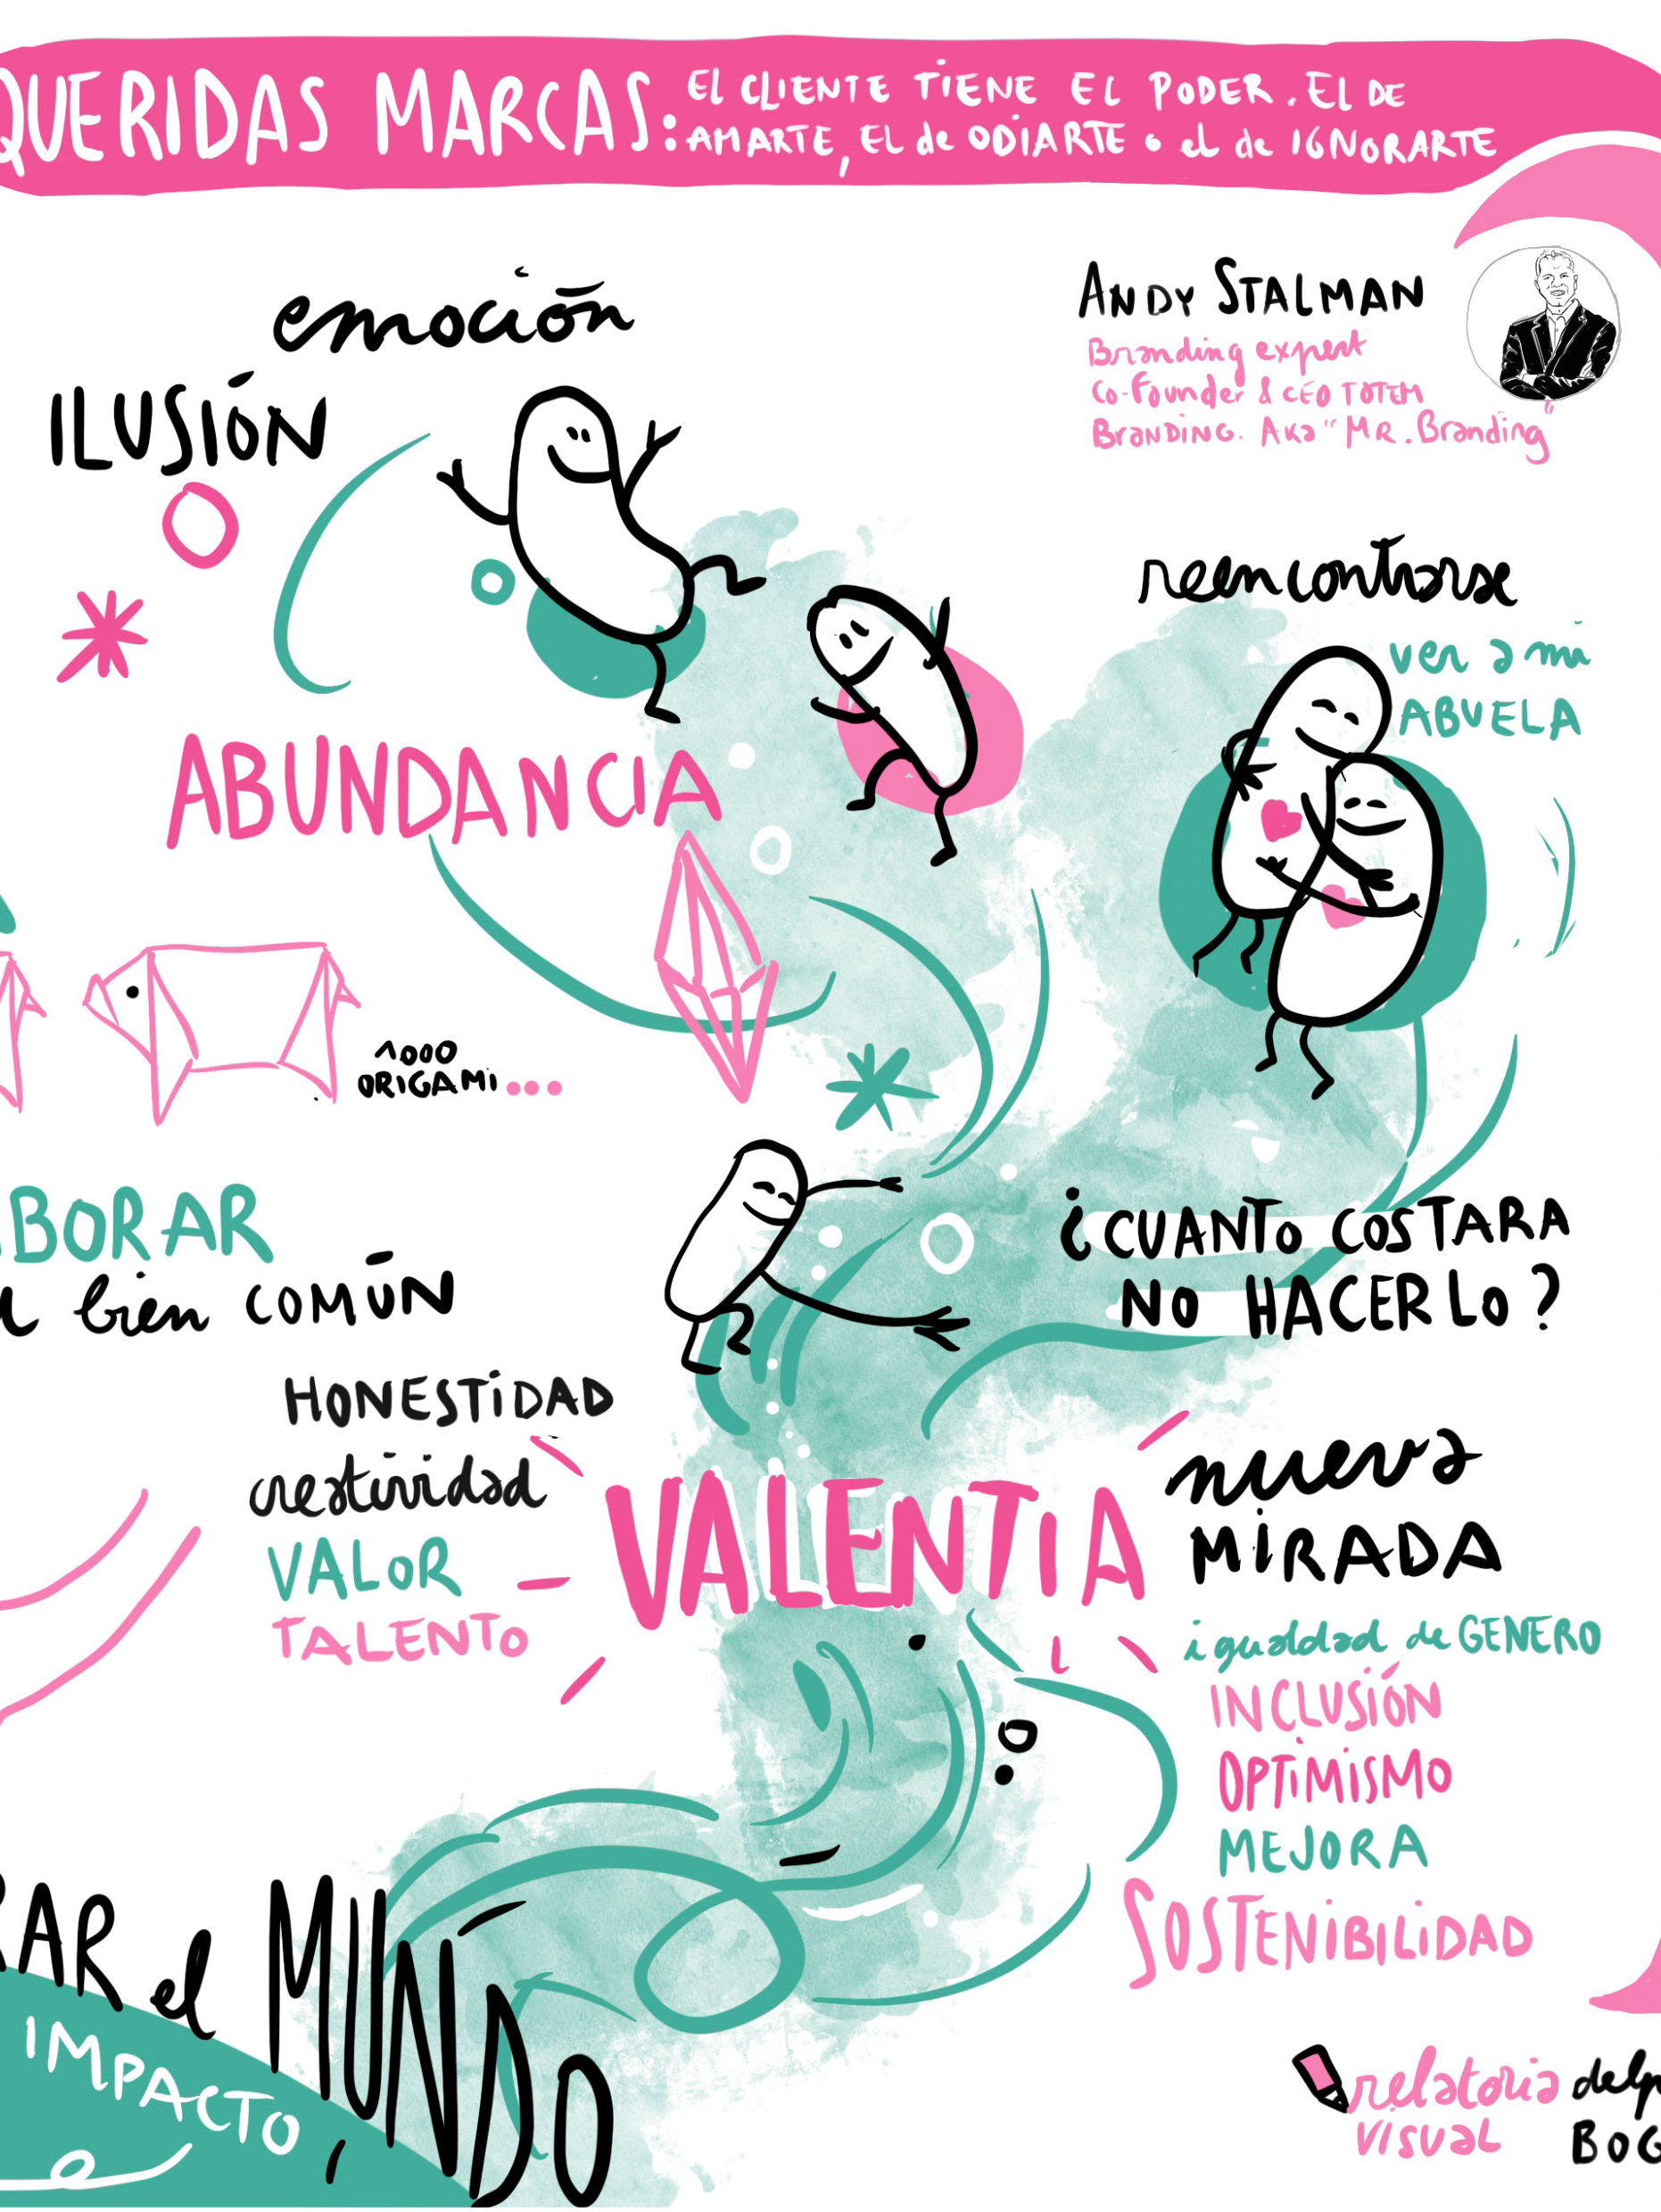 QUERIDAS MARCAS:
EL CLIENTE TIENE EL PODER. EL DE
AMARTE, EL de ODIARTE o el de IGNORARTE
emoción
ILUSIÓN
ANDY STALMAN
Branding expert
Co-Founder & CEO TOTEM
BRANDING. AKA "MR. Branding"
reencontrarse
ver a mi
ABUELA
ABUNDANCIA
1000
ORIGAMI...
BORAR
bien COMÚN
¿CUANTO COSTARA
NO HACERLO?
HONESTIDAD
creatividad
VALOR
TALENTO
VALENTIA
nueva
MIRADA
igualdad de GENERO
INCLUSIÓN
OPTIMISMO
MEJORA
SOSTENIBILIDAD
RAR el MUNDO
IMPACTO
relatoria
visual
BOG